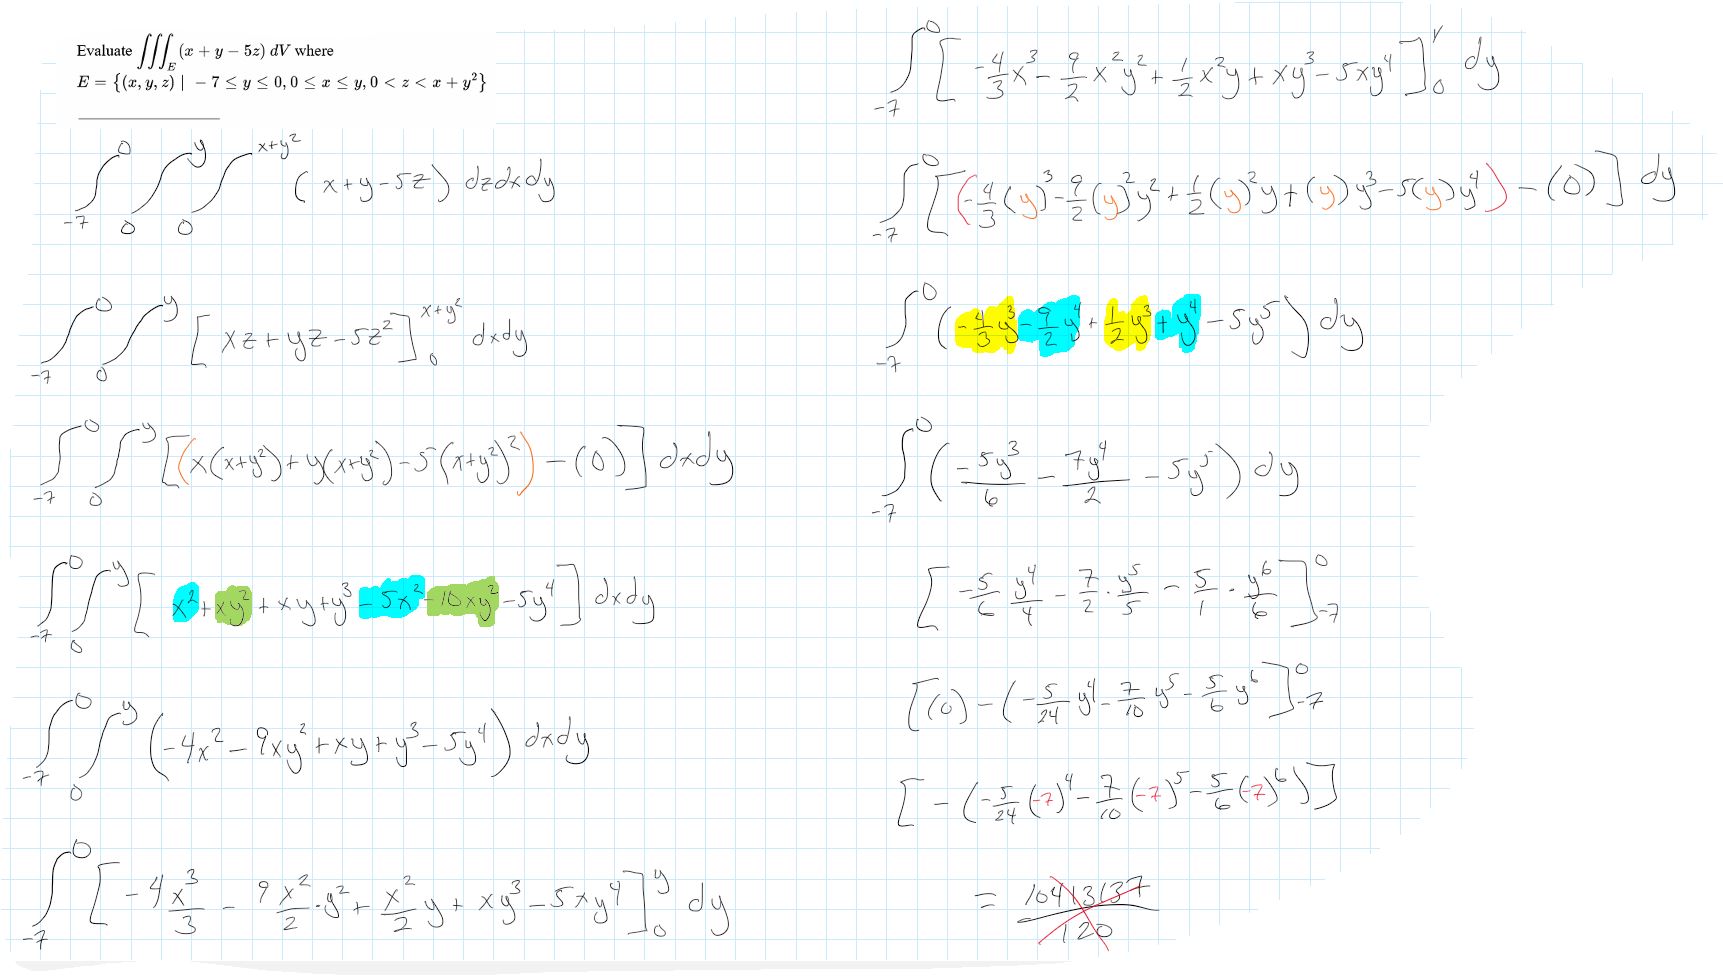 Evaluate ∭_E (x + y − 5z) dV where
E = {(x, y, z) | −7 ≤ y ≤ 0, 0 ≤ x ≤ y, 0 < z < x + y²}
∫_{-7}^{0} ∫_{0}^{y} ∫_{0}^{x+y²} (x+y-5z) dzdxdy
∫_{-7}^{0} ∫_{0}^{y} [xz+yz-5z²]_{0}^{x+y²} dxdy
∫_{-7}^{0} ∫_{0}^{y} [(x(x+y²)+y(x+y²)-5(x+y²)²)-(0)] dxdy
∫_{-7}^{0} ∫_{0}^{y} [x²+xy²+xy+y³-5x²-10xy²-5y⁴] dxdy
∫_{-7}^{0} ∫_{0}^{y} (-4x²-9xy²+xy+y³-5y⁴) dxdy
∫_{-7}^{0} [-4 x³/3 - 9 x²/2 · y² + x²/2 y + xy³ - 5xy⁴]_{0}^{y} dy
∫_{-7}^{0} [-4/3 x³ - 9/2 x²y² + 1/2 x²y + xy³ - 5xy⁴]_{0}^{y} dy
∫_{-7}^{0} [(-4/3 (y)³ - 9/2 (y)²y² + 1/2 (y)²y + (y)y³ - 5(y)y⁴) - (0)] dy
∫_{-7}^{0} (-4/3 y³ - 9/2 y⁴ + 1/2 y³ + y⁴ - 5y⁵) dy
∫_{-7}^{0} (-5y³/6 - 7y⁴/2 - 5y⁵) dy
[-5/6 y⁴/4 - 7/2 · y⁵/5 - 5/1 · y⁶/6]_{-7}^{0}
[(0) - (-5/24 y⁴ - 7/10 y⁵ - 5/6 y⁶]_{-7}^{0}
[-(-5/24 (-7)⁴ - 7/10 (-7)⁵ - 5/6 (-7)⁶)]
= 10413137/120